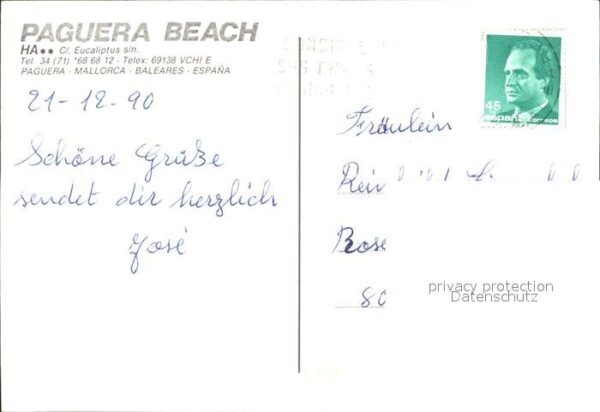 PAGUERA BEACH
HA•• C/. Eucaliptus s/n.
Tel. 34 (71) *68 68 12 - Telex: 69138 VCHI E
PAGUERA - MALLORCA - BALEARES - ESPAÑA
21-12.90
Schöne Grüße
sendet dir herzlich
José
45
españa correos
Fräulein
Rose
80
privacy protection
Datenschutz